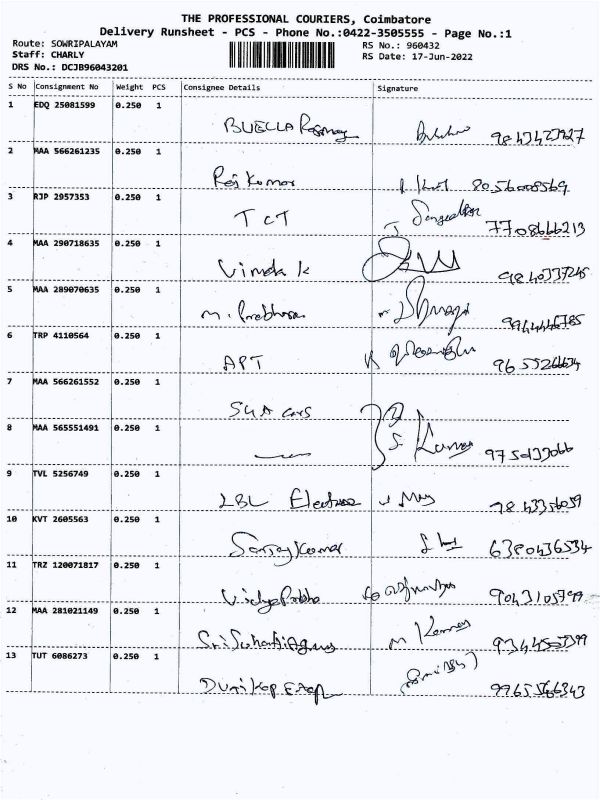 THE PROFESSIONAL COURIERS, Coimbatore
Delivery Runsheet - PCS - Phone No.:0422-3505555 - Page No.:1
Route: SOWRIPALAYAM RS No.: 960432
Staff: CHARLY RS Date: 17-Jun-2022
DRS No.: DCJB96043201
S No Consignment No Weight PCS Consignee Details Signature
1 EDQ 25081599 0.250 1
BUELLA
2 MAA 566261235 0.250 1
Raj Kumar 8056008569
3 RJP 2957353 0.250 1
TCT 7708666213
4 MAA 290718635 0.250 1
Vimala K 9840337245
5 MAA 289070635 0.250 1
M. Prabhu
6 TRP 4110564 0.250 1
APT
7 MAA 566261552 0.250 1
8 MAA 565551491 0.250 1
S. Kumar
9 TVL 5256749 0.250 1
LBL
10 KVT 2605563 0.250 1
Sanjay Kumar 6380436534
11 TRZ 120071817 0.250 1
Vidya Prabha 9043105799
12 MAA 281021149 0.250 1
M Kumar
13 TUT 6086273 0.250 1
9965566343